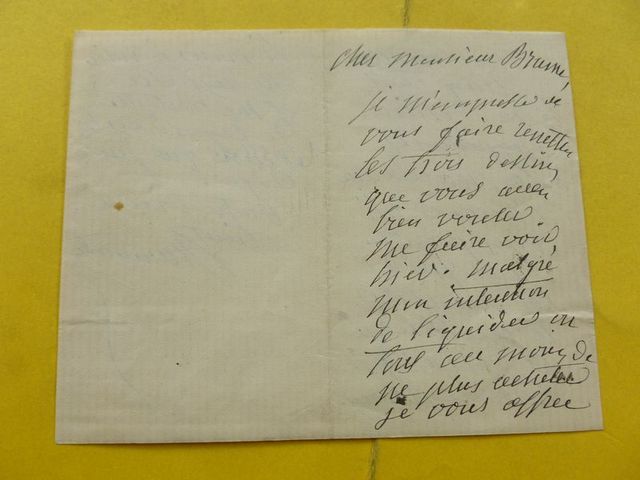 Cher Monsieur Brame,
je m'empresse de
vous faire remettre
les trois dessins
que vous avez
bien voulu
me faire voir
hier. Malgré
mon intention
de liquider ou
tout au moins de
ne plus acheter
je vous offre